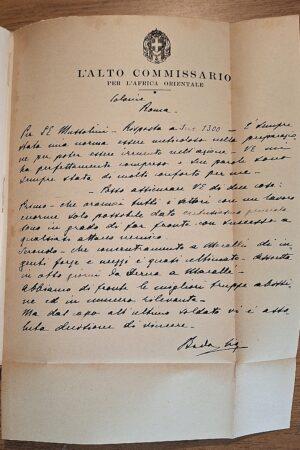 L'ALTO COMMISSARIO
PER L'AFRICA ORIENTALE
Colonie
Roma
Per SE Mussolini - Risposta a 1300 - È sempre
stata una norma essere meticoloso nella preparazio
ne per poter essere irruente nell'azione - VE mi
ha perfettamente compreso e sue parole sono
sempre state di molto conforto per me -
Posso assicurare VE do due cose:
Primo - che oramai tutti i settori con un lavoro
enorme solo possibile dato entusiasmo generale
sono in grado di far fronte con successo a
qualsiasi attacco nemico
Secondo - che concentramento a Macallè di in
genti forze e mezzi è quasi ultimato -
in otto giorni da a Macallè -
Abbiamo di fronte le migliori truppe abissi
ne ed in numero rilevante -
Ma dal capo all'ultimo soldato vi è asso
luta decisione di vincere -
Badoglio